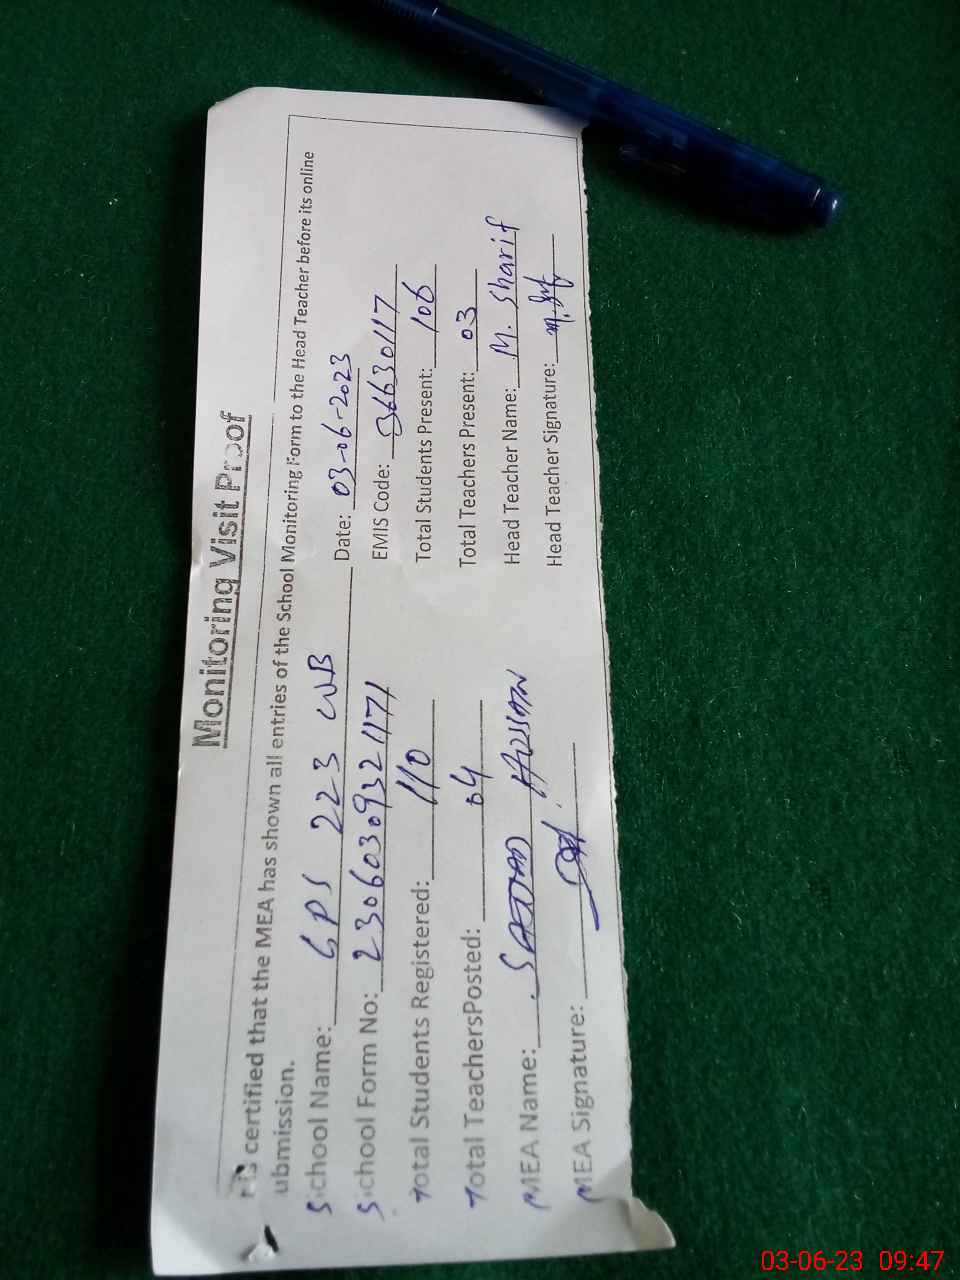 Monitoring Visit Proof
is certified that the MEA has shown all entries of the School Monitoring Form to the Head Teacher before its online
ubmission.
School Name: GPS 223 WB Date: 03-06-2023
School Form No: EMIS Code: 36630117
Total Students Registered: 110 Total Students Present: 106
Total TeachersPosted: 04 Total Teachers Present: 03
MEA Name: SAJJAD HUSSAIN Head Teacher Name: M. Sharif
MEA Signature: Head Teacher Signature:
03-06-23 09:47